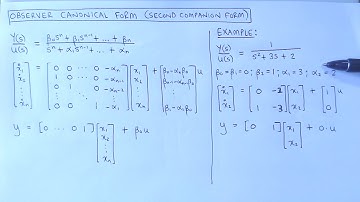 OBSERVER CANONICAL FORM (SECOND COMPANION FORM)
Y(s)/U(s) = (β₀sⁿ + β₁sⁿ⁻¹ + ... + βₙ) / (sⁿ + α₁sⁿ⁻¹ + ... + αₙ)
[ẋ₁ ẋ₂ ⋮ ẋₙ] = [0 0 ... 0 -αₙ; 1 0 ... 0 -αₙ₋₁; 0 1 ... 0 -αₙ₋₂; ⋮ ⋮ ⋮ ⋮; 0 0 ... 1 -α₁] [x₁ x₂ x₃ ⋮ xₙ] + [βₙ-αₙβ₀; βₙ₋₁-αₙ₋₁β₀; ⋮; β₁-α₁β₀] u
y = [0 ... 0 1] [x₁ x₂ ⋮ xₙ] + β₀u
EXAMPLE:
Y(s)/U(s) = 1 / (s² + 3s + 2)
β₀ = β₁ = 0; β₂ = 1; α₁ = 3; α₂ = 2
[ẋ₁ ẋ₂] = [0 -2; 1 -3] [x₁ x₂] + [1; 0] u
y = [0 1] [x₁ x₂] + 0·u